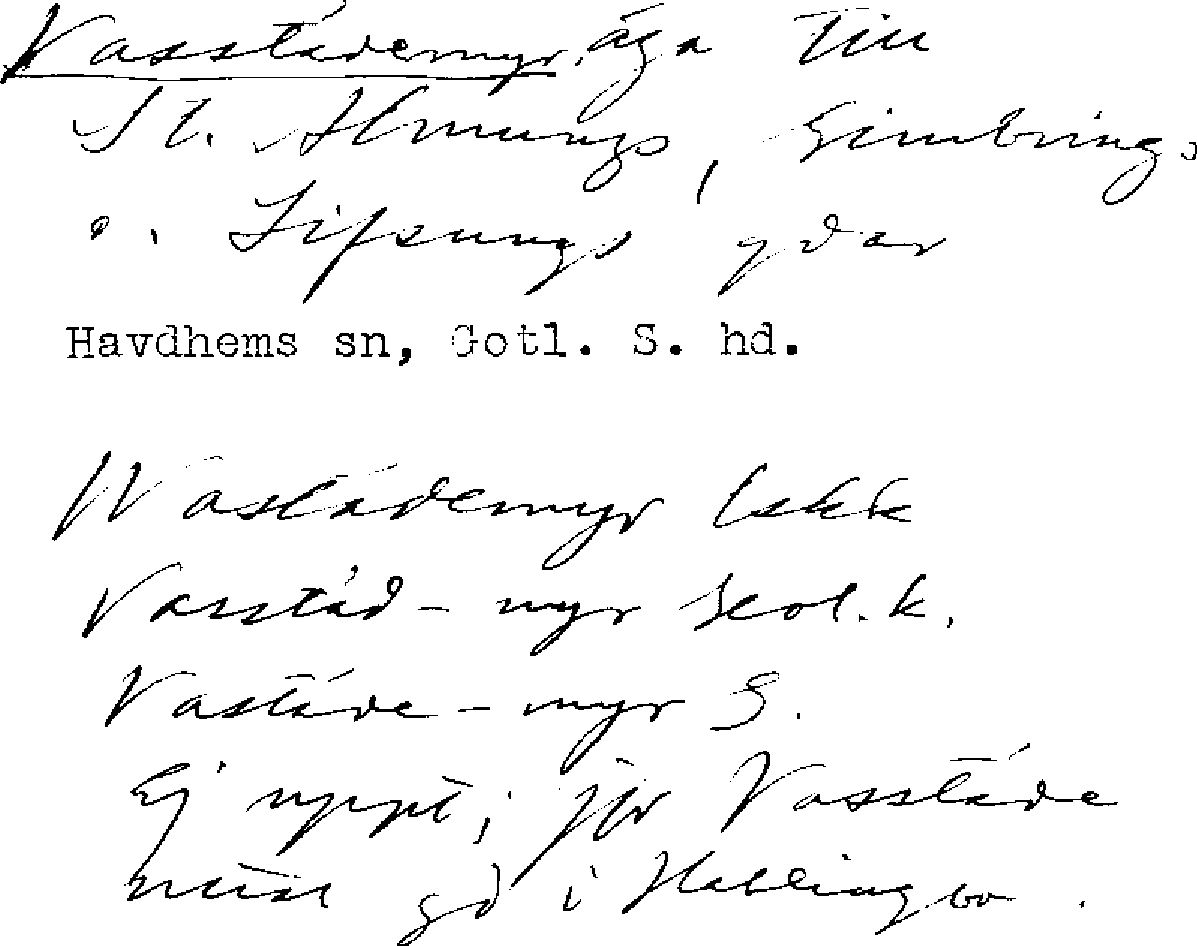 Vasstädemyr, äga till
St. Almungs, Gimbrings
o. Sippungs gdar
Havdhems sn, Gotl. S. hd.
Wastädemyr lskk
Vasstäd-myr Geol. k.
Vastäde-myr G.
Ej uppt; jfr Vasstäde
gd i Hablingbo.